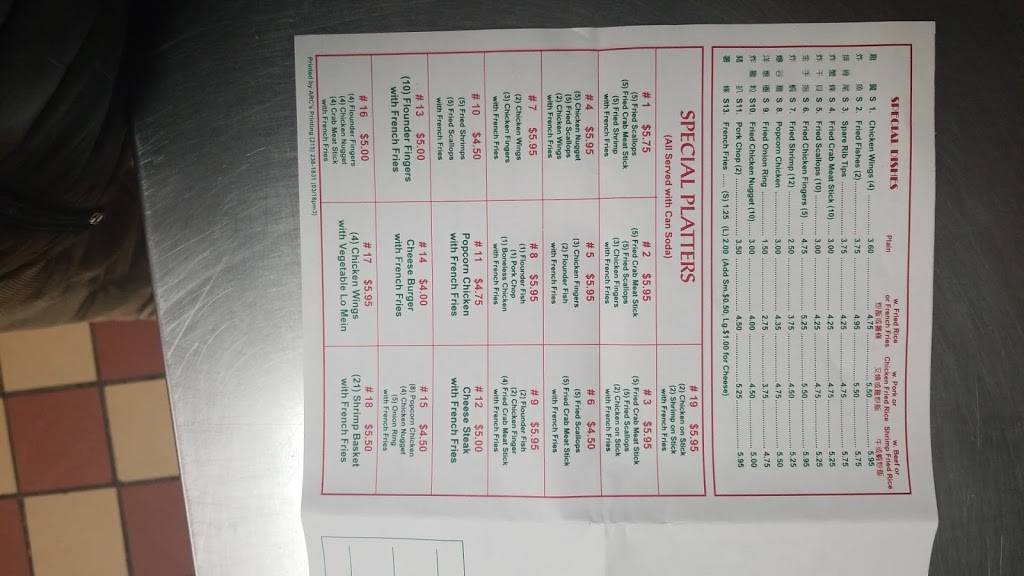 SPECIAL DISHES
Plain
w. Fried Rice or French Fries
w. Pork or Chicken Fried Rice
w. Beef or Shrimp Fried Rice
S 1. Chicken Wings (4) 3.60 4.75 5.50 5.95
S 2. Fried Fishes (2) 3.75 4.95 5.50 5.75
S 3. Spare Rib Tips 3.75 4.25 4.75 5.75
S 4. Fried Crab Meat Stick (10) 3.00 4.25 4.75 5.25
S 5. Fried Scallops (10) 3.00 4.25 4.75 5.25
S 6. Fried Chicken Fingers (5) 4.75 5.25 5.50 5.95
S 7. Fried Shrimp (12) 2.50 3.75 4.50 5.25
S 8. Popcorn Chicken 3.00 4.35 4.75 5.50
S 9. Fried Onion Ring 1.50 2.75 3.75 4.75
S10. Fried Chicken Nugget (10) 3.00 4.00 4.50 5.00
S11. Pork Chop (2) 3.50 4.50 5.25 5.95
S13. French Fries ...... (S) 1.25 (L) 2.00 (Add Sm.$0.50, Lg.$1.00 for Cheese)
SPECIAL PLATTERS
(All Served with Can Soda)
# 19 $5.95
(2) Chicken on Stick
(2) Shrimp on Stick
with French Fries
# 1 $5.75
(5) Fried Scallops
(5) Fried Crab Meat Stick
(5) Fried Shrimp
with French Fries
# 2 $5.95
(5) Fried Crab Meat Stick
(5) Fried Scallops
(3) Chicken Fingers
with French Fries
# 3 $5.95
(5) Fried Crab Meat Stick
(5) Fried Scallops
(2) Chicken on Stick
with French Fries
# 4 $5.95
(5) Chicken Nugget
(5) Fried Scallops
(2) Chicken Wings
with French Fries
# 5 $5.95
(3) Chicken Fingers
(2) Flounder Fish
with French Fries
# 6 $4.50
(5) Fried Scallops
(5) Fried Crab Meat Stick
with French Fries
# 7 $5.95
(2) Chicken Wings
(3) Chicken Fingers
with French Fries
# 8 $5.95
(1) Flounder Fish
(1) Pork Chop
(1) Boneless Chicken
with French Fries
# 9 $5.95
(2) Flounder Fish
(2) Chicken Finger
(4) Fried Crab Meat Stick
with French Fries
# 10 $4.50
(5) Fried Shrimps
(5) Fried Scallops
with French Fries
# 11 $4.75
Popcorn Chicken
with French Fries
# 12 $5.00
Cheese Steak
with French Fries
# 13 $5.00
(10) Flounder Fingers
with French Fries
# 14 $4.00
Cheese Burger
with French Fries
# 15 $4.50
(8) Popcorn Chicken
(4) Chicken Nugget
(5) Onion Ring
with French Fries
# 16 $5.00
(4) Flounder Fingers
(4) Chicken Nugget
(4) Crab Meat Stick
with French Fries
# 17 $5.95
(4) Chicken Wings
with Vegetable Lo Mein
# 18 $5.50
(21) Shrimp Basket
with French Fries
Printed by ARC's Printing (215) 238-1831